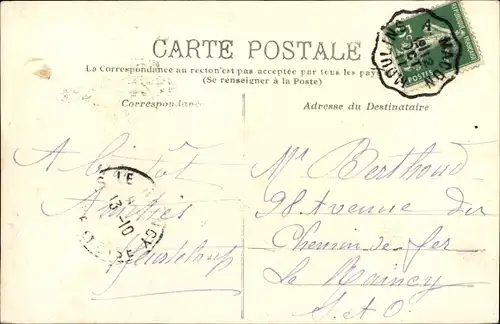 CARTE POSTALE
La Correspondance au recto n'est pas acceptée par tous les pays
(Se renseigner à la Poste)
Correspondance
Adresse du Destinataire
A bientôt
Amitiés
Mr Berthoud
98 Avenue du
Chemin de fer
Le Raincy
S. et O.
5
POSTES
MACON
MOULIN
13-10